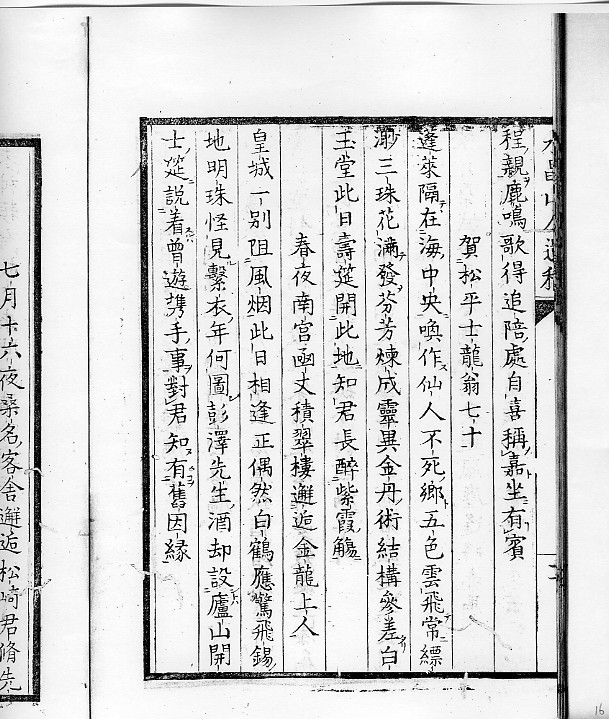 程親鹿鳴歌得追陪處自喜稱嘉坐有賓
賀松平士龍翁七十
蓬萊隔在海中央喚作仙人不死鄉五色雲飛常縹
渺三珠花滿發芬芳煉成靈異金丹術結構參差白
玉堂此日壽筵開此地知君長醉紫霞觴
春夜南宮凾丈積翠樓邂逅金龍上人
皇城一別阻風烟此日相逢正偶然白鶴應驚飛錫
地明珠怪見繫衣年何圖彭澤先生酒却設廬山開
士筵說着曾遊携手事對君知有舊因緣
七月十六夜桑名客舍邂逅松崎君脩先
16